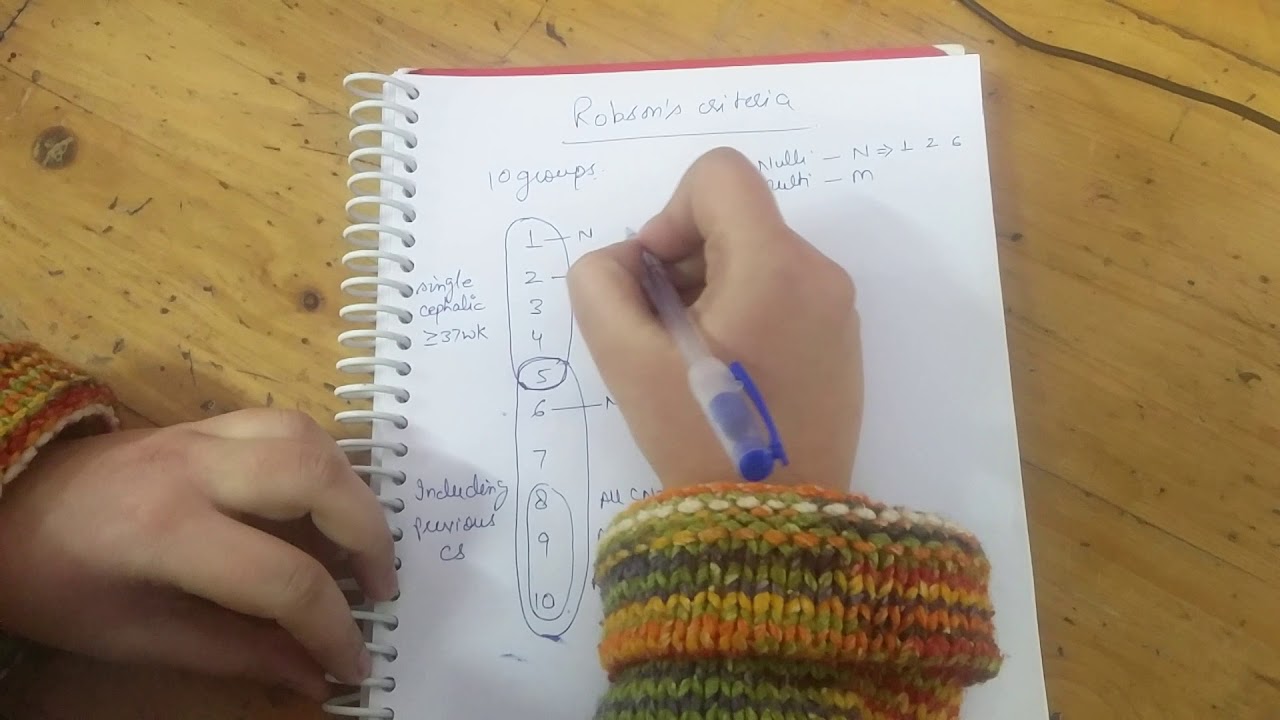 Robson's criteria
10 groups.
Nulli - N ⇒ 1 2 6
- M
1 - N
2 -
3
4
5
6 -
7
8
9
10
single
cephalic
≥37wk
Including
previous
CS
All